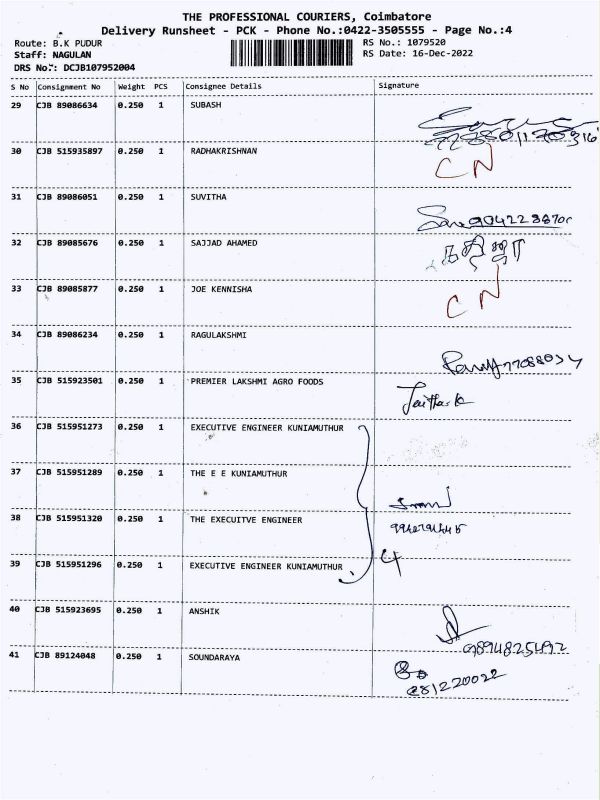 THE PROFESSIONAL COURIERS, Coimbatore
Delivery Runsheet - PCK - Phone No.:0422-3505555 - Page No.:4
Route: B.K PUDUR
RS No.: 1079520
Staff: NAGULAN
RS Date: 16-Dec-2022
DRS No.: DCJB107952004
S No Consignment No Weight PCS Consignee Details Signature
29 CJB 89086634 0.250 1 SUBASH
30 CJB 515935897 0.250 1 RADHAKRISHNAN CN
31 CJB 89086051 0.250 1 SUVITHA
32 CJB 89085676 0.250 1 SAJJAD AHAMED
33 CJB 89085877 0.250 1 JOE KENNISHA CN
34 CJB 89086234 0.250 1 RAGULAKSHMI
35 CJB 515923501 0.250 1 PREMIER LAKSHMI AGRO FOODS
36 CJB 515951273 0.250 1 EXECUTIVE ENGINEER KUNIAMUTHUR
37 CJB 515951289 0.250 1 THE E E KUNIAMUTHUR
38 CJB 515951320 0.250 1 THE EXECUITVE ENGINEER
39 CJB 515951296 0.250 1 EXECUTIVE ENGINEER KUNIAMUTHUR 4
40 CJB 515923695 0.250 1 ANSHIK
9894825492
41 CJB 89124048 0.250 1 SOUNDARAYA